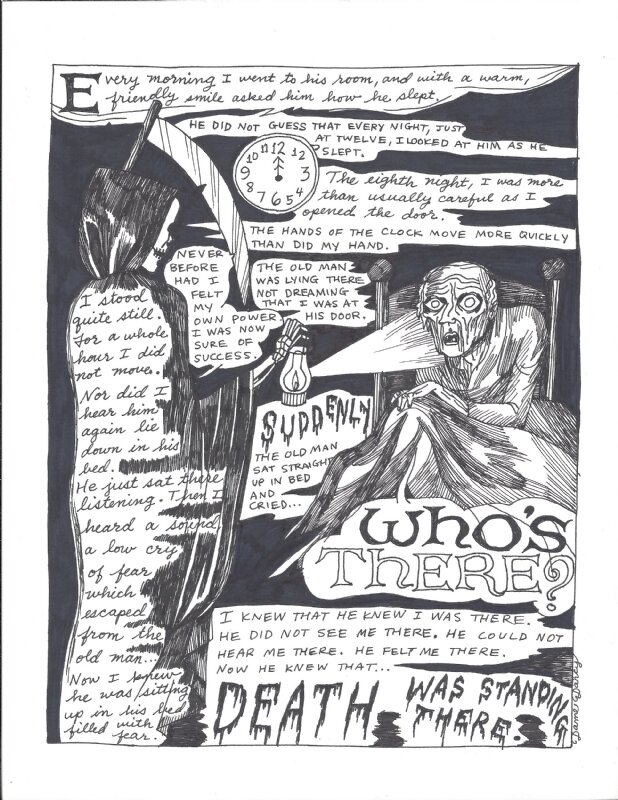 Every morning I went to his room, and with a warm,
friendly smile asked him how he slept.
HE DID NOT GUESS THAT EVERY NIGHT, JUST
AT TWELVE, I LOOKED AT HIM AS HE
SLEPT.
The eighth night, I was more
than usually careful as I
opened the door.
THE HANDS OF THE CLOCK MOVE MORE QUICKLY
THAN DID MY HAND.
NEVER
BEFORE
HAD I
FELT
MY
OWN POWER
I WAS NOW
SURE OF
SUCCESS.
THE OLD MAN
WAS LYING THERE
NOT DREAMING
THAT I WAS AT
HIS DOOR.
I stood
quite still.
For a whole
hour I did
not move.
Nor did I
hear him
again lie
down in his
bed.
He just sat there
listening. Then I
heard a sound,
a low cry
of fear
which
escaped
from the
old man...
Now I knew
he was sitting
up in his bed
filled with
fear.
SUDDENLY
THE OLD MAN
SAT STRAIGHT
UP IN BED
AND
CRIED...
WHO'S
THERE?
I KNEW THAT HE KNEW I WAS THERE.
HE DID NOT SEE ME THERE. HE COULD NOT
HEAR ME THERE. HE FELT ME THERE.
NOW HE KNEW THAT...
DEATH WAS STANDING
THERE.
Dame Darcy